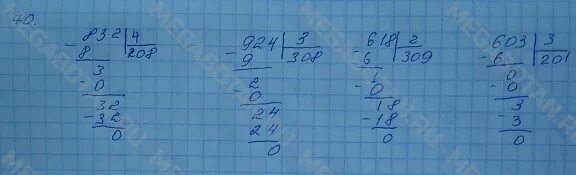 70.
- 832 | 4
8 | 208
3
- 0
32
- 32
0
- 924 | 3
9 | 308
2
- 0
24
24
0
- 618 | 2
6 | 309
1
- 0
18
- 18
0
603 | 3
- 6 | 201
0
- 0
3
- 3
0